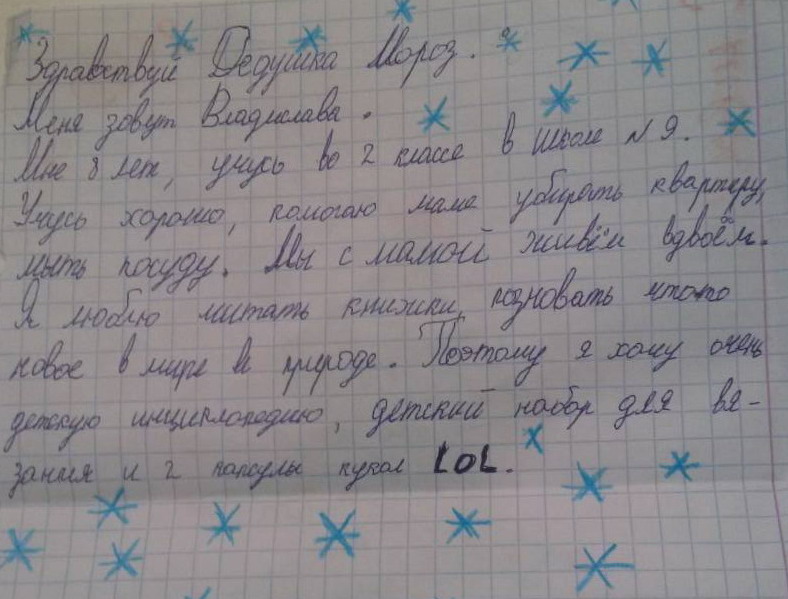 Здравствуй Дедушка Мороз.
Меня зовут Владислава.
Мне 8 лет, учусь во 2 классе в школе №9.
Учусь хорошо, помогаю маме убирать квартиру,
мыть посуду. Мы с мамой живём вдвоём.
Я люблю читать книжки, позновать что то
новое в мире и природе. Поэтому я хочу очень
детскую инциклопедию, детский набор для вя-
зания и 2 капсулы кукол LOL.